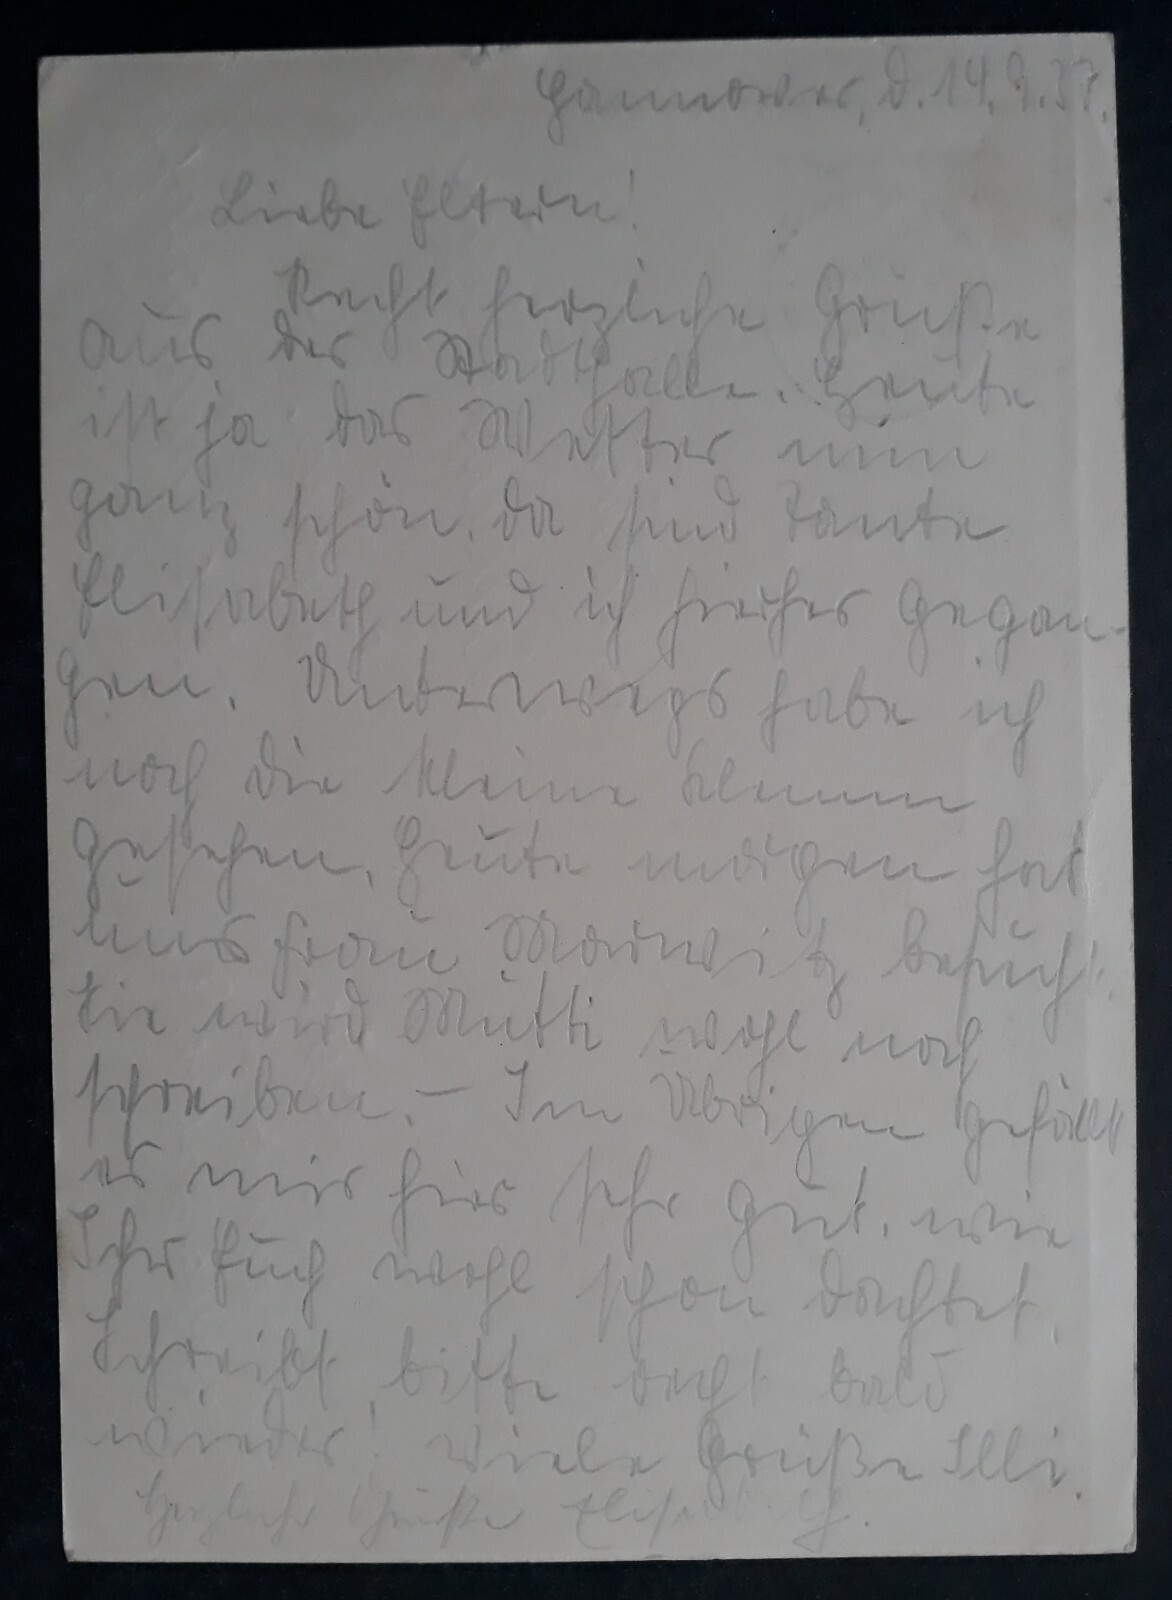 Hannover, d. 14.9.37.
Liebe Eltern!
Recht herzliche Grüße
aus der Stadthalle. Heute
ist ja das Wetter nun
ganz schön, da sind Tante
Elisabeth und ich hierher gegan-
gen. Unterwegs habe ich
noch die kleine Klemm
gesehen. Heute morgen hat
uns Frau Marwitz besucht.
Sie wird Mutti wohl noch
schreiben. – Im Übrigen gefällt
es mir hier sehr gut, wie
Ihr Euch wohl schon dachtet.
Schreibt bitte recht bald
wieder! Viele Grüße Illi.
Herzliche Grüße Elisabeth.